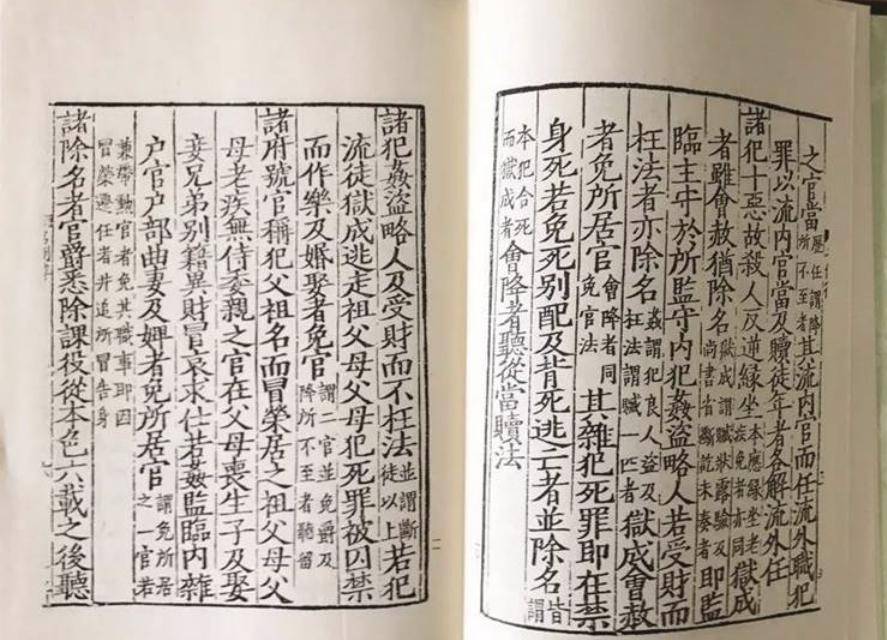 之官當歷任謂降所不至者其流內官而任流外職犯
罪以流內官當及贖徒年者各解流外任
諸犯十惡故殺人反逆緣坐本應緣坐老疾免者亦同獄成
者雖會赦猶除名獄成謂贓狀露驗及尚書省斷訖未奏者即監
臨主守於所監守內犯姦盜略人若受財而
枉法者亦除名姦謂犯良人盜及枉法謂贓一匹者獄成會赦
者免所居官會降者同免官法其雜犯死罪即在禁
身死若免死別配及背死逃亡者並除名皆謂
本犯合死而獄成者會降者聽從當贖法
諸犯姦盜略人及受財而不枉法並謂斷徒以上若犯
流徒獄成逃走祖父母父母犯死罪被囚禁
而作樂及婚娶者免官謂二官並免爵及降所不至者聽留
諸府號官稱犯父祖名而冒榮居之祖父母父
母老疾無侍委親之官在父母喪生子及娶
妾兄弟別籍異財冒哀求仕若姦監臨內雜
户官户部曲妻及婢者免所居官謂免所居之一官若
兼帶勳官者免其職事即因冒榮遷任者并追所冒告身
諸除名者官爵悉除課役從本色六載之後聽